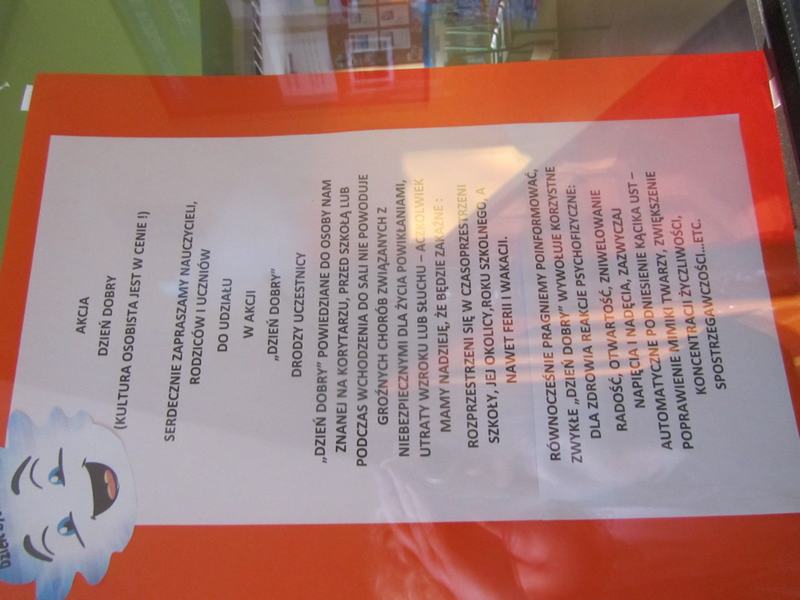 AKCJA
DZIEŃ DOBRY
(KULTURA OSOBISTA JEST W CENIE !)
SERDECZNIE ZAPRASZAMY NAUCZYCIELI,
RODZICÓW I UCZNIÓW
DO UDZIAŁU
W AKCJI
„DZIEŃ DOBRY”
DRODZY UCZESTNICY
„DZIEŃ DOBRY” POWIEDZIANE DO OSOBY NAM
ZNANEJ NA KORYTARZU, PRZED SZKOŁĄ LUB
PODCZAS WCHODZENIA DO SALI NIE POWODUJE
GROŹNYCH CHORÓB ZWIĄZANYCH Z
NIEBEZPIECZNYMI DLA ŻYCIA POWIKŁANIAMI,
UTRATY WZROKU LUB SŁUCHU – ACZKOLWIEK
MAMY NADZIEJĘ, ŻE BĘDZIE ZAKAŹNE :
ROZPRZESTRZENI SIĘ W CZASOPRZESTRZENI
SZKOŁY, JEJ OKOLICY,ROKU SZKOLNEGO, A
NAWET FERII I WAKACJI.
RÓWNOCZEŚNIE PRAGNIEMY POINFORMOWAĆ,
ZWYKŁE „DZIEŃ DOBRY” WYWOŁUJE KORZYSTNE
DLA ZDROWIA REAKCJE PSYCHOFIZYCZNE:
RADOŚĆ, OTWARTOŚĆ, ZNIWELOWANIE
NAPIĘCIA I NADĘCIA, ZAZWYCZAJ
AUTOMATYCZNE PODNIESIENIE KĄCIKA UST –
POPRAWIENIE MIMIKI TWARZY, ZWIĘKSZENIE
KONCENTRACJI ŻYCZLIWOŚCI,
SPOSTRZEGAWCZOŚCI...ETC.